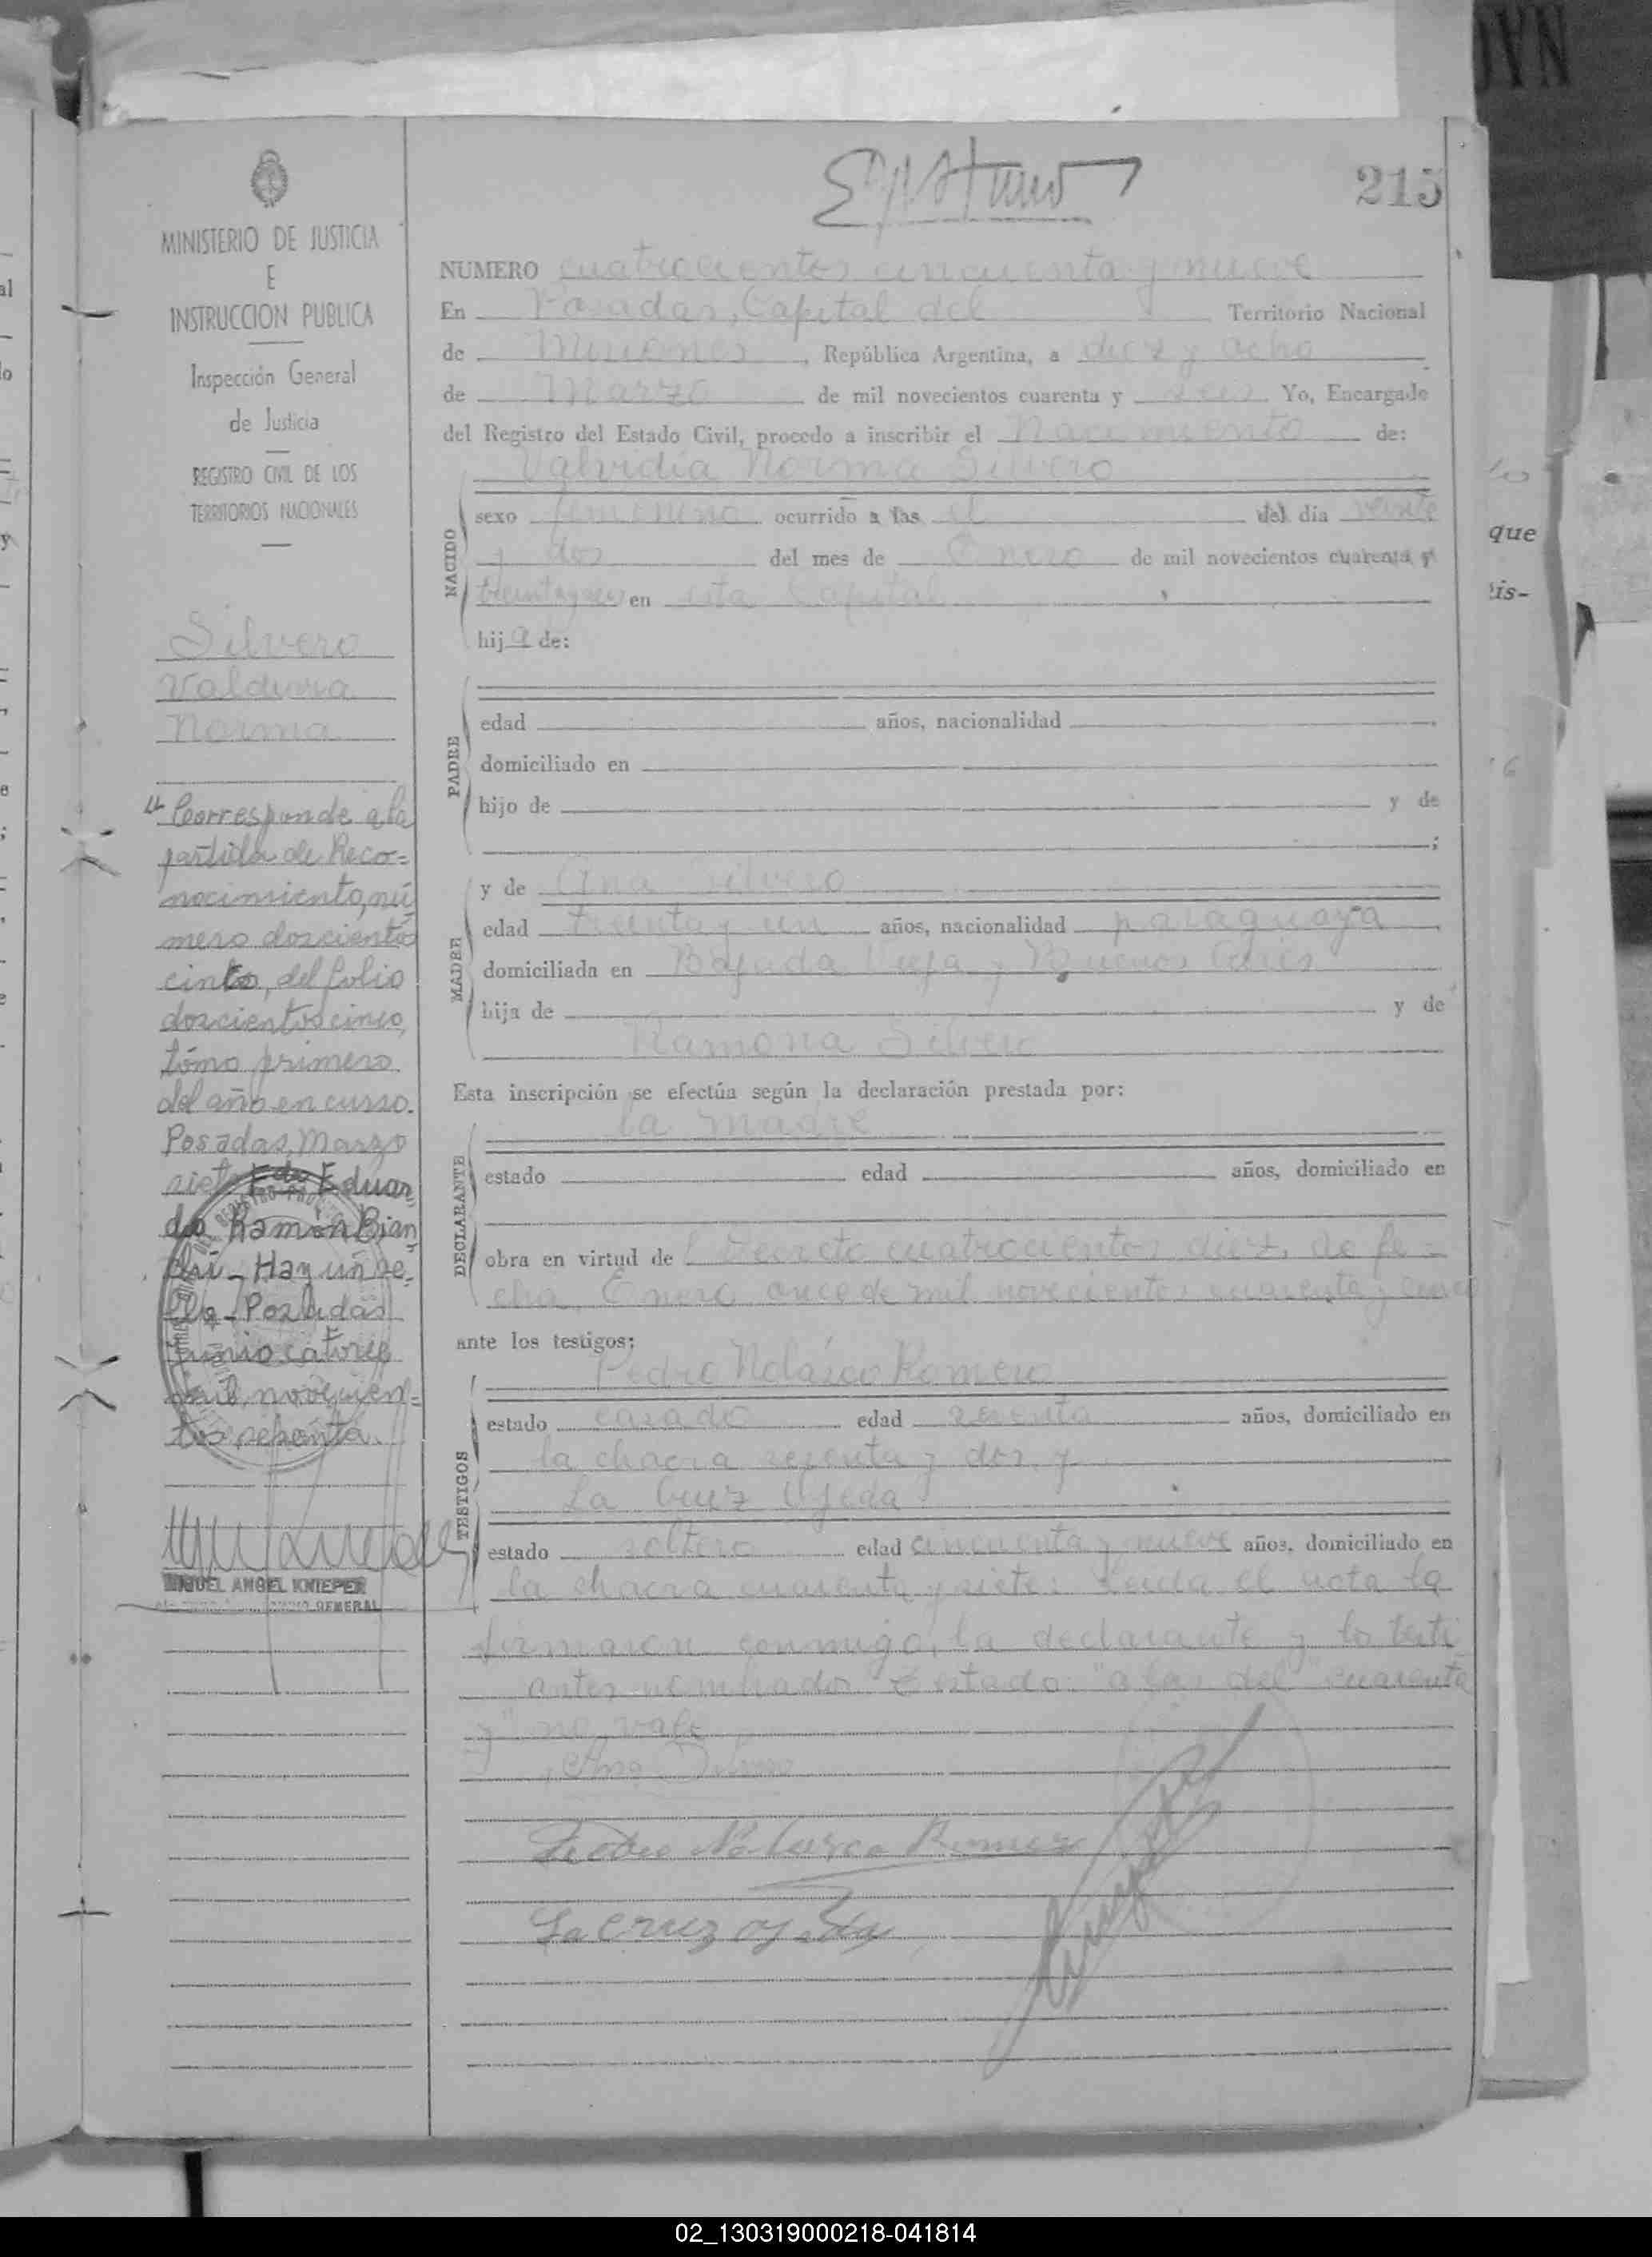 215
MINISTERIO DE JUSTICIA
E
INSTRUCCION PUBLICA
Inspección General
de Justicia
REGISTRO CIVIL DE LOS
TERRITORIOS NACIONALES
Silvero
Norma
"Corresponde a la
partida de Reco=
nocimiento, nú
mero doscientos
cinco, del folio
doscientos cinco,
tómo primero
del año en curso.
Posadas, Marzo
siete Fdo Eduar
do Ramón Bian
chi - Hay un se-
llo - Posadas
Junio catorce
mil novecien=
tos sesenta.
MIGUEL ANGEL KNIEPER
GENERAL
NUMERO cuatrocientos cincuenta y nueve
En Posadas, Capital del Territorio Nacional
de Misiones, República Argentina, a diez y ocho
de Marzo de mil novecientos cuarenta y seis Yo, Encargado
del Registro del Estado Civil, procedo a inscribir el Nacimiento de:
Norma Silvero
NACIDO
sexo femenino ocurrido a las el del día veinte
y dos del mes de Enero de mil novecientos cuarenta y
en esta Capital
hija de:
PADRE
edad años, nacionalidad
domiciliado en
hijo de y de
;
MADRE
y de Ana Silvero
edad treinta y un años, nacionalidad paraguaya
domiciliada en Bajada Vieja y Buenos Aires
hija de y de
Ramona Silvero
Esta inscripción se efectúa según la declaración prestada por:
la madre
DECLARANTE
estado edad años, domiciliado en
obra en virtud de Decreto cuatrocientos diez, de fe-
cha, Enero once de mil novecientos cuarenta y cinco
ante los testigos:
Pedro Nolasco Romero
TESTIGOS
estado casado edad sesenta años, domiciliado en
la chacra sesenta y dos, y
La Cruz Ojeda
estado soltero edad cincuenta y nueve años, domiciliado en
la chacra cuarenta y siete. Leida el acta la
firmaron conmigo, la declarante y lo testi
antes nombrados Testado: "a las del" "cuarenta
y" no vale
Ana Silvero
Pedro Nolasco Romero
La Cruz ojeda
que
is-
02_130319000218-041814